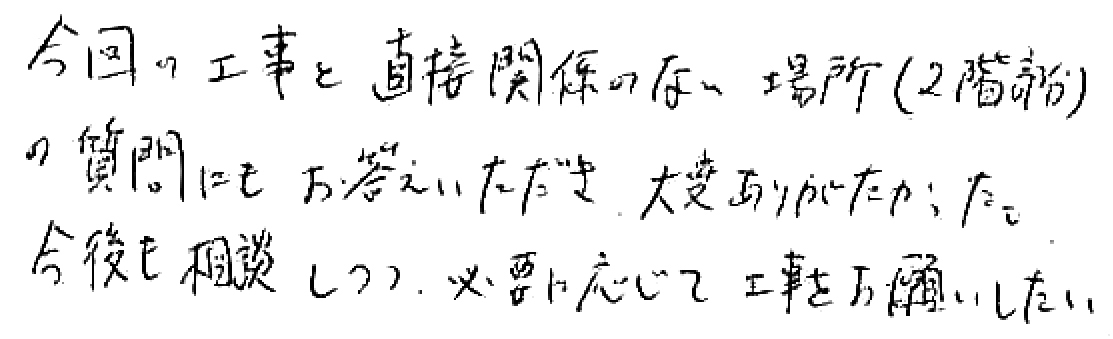 今回の工事と直接関係のない場所(2階部分)
の質問にもお答えいただき、大変ありがたかった。
今後も相談しつつ、必要に応じて工事をお願いしたい